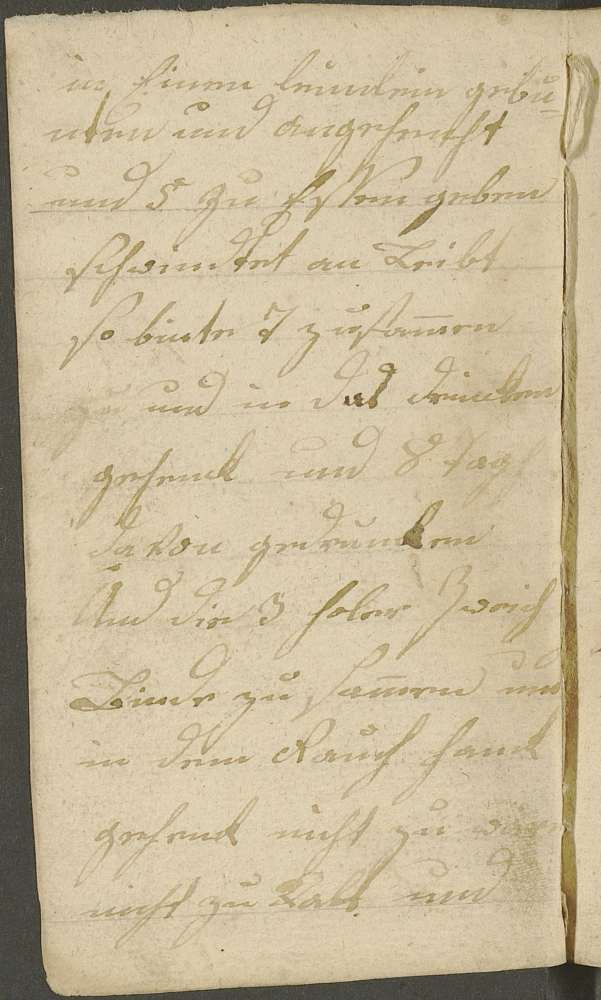 in Einen leinlein gebu-
nten und angehenckt
und 5 zu Essen geben
schwindtet an Leibt
so binte 7 zusam̄en
und in das drincken
gehenck und 8 Tag
davon gedruncken
Und die 3 holer Zweich
Binde zu sam̄en und
in dem Rauch fanck
gehenck nicht zu
nicht zu Kalt und